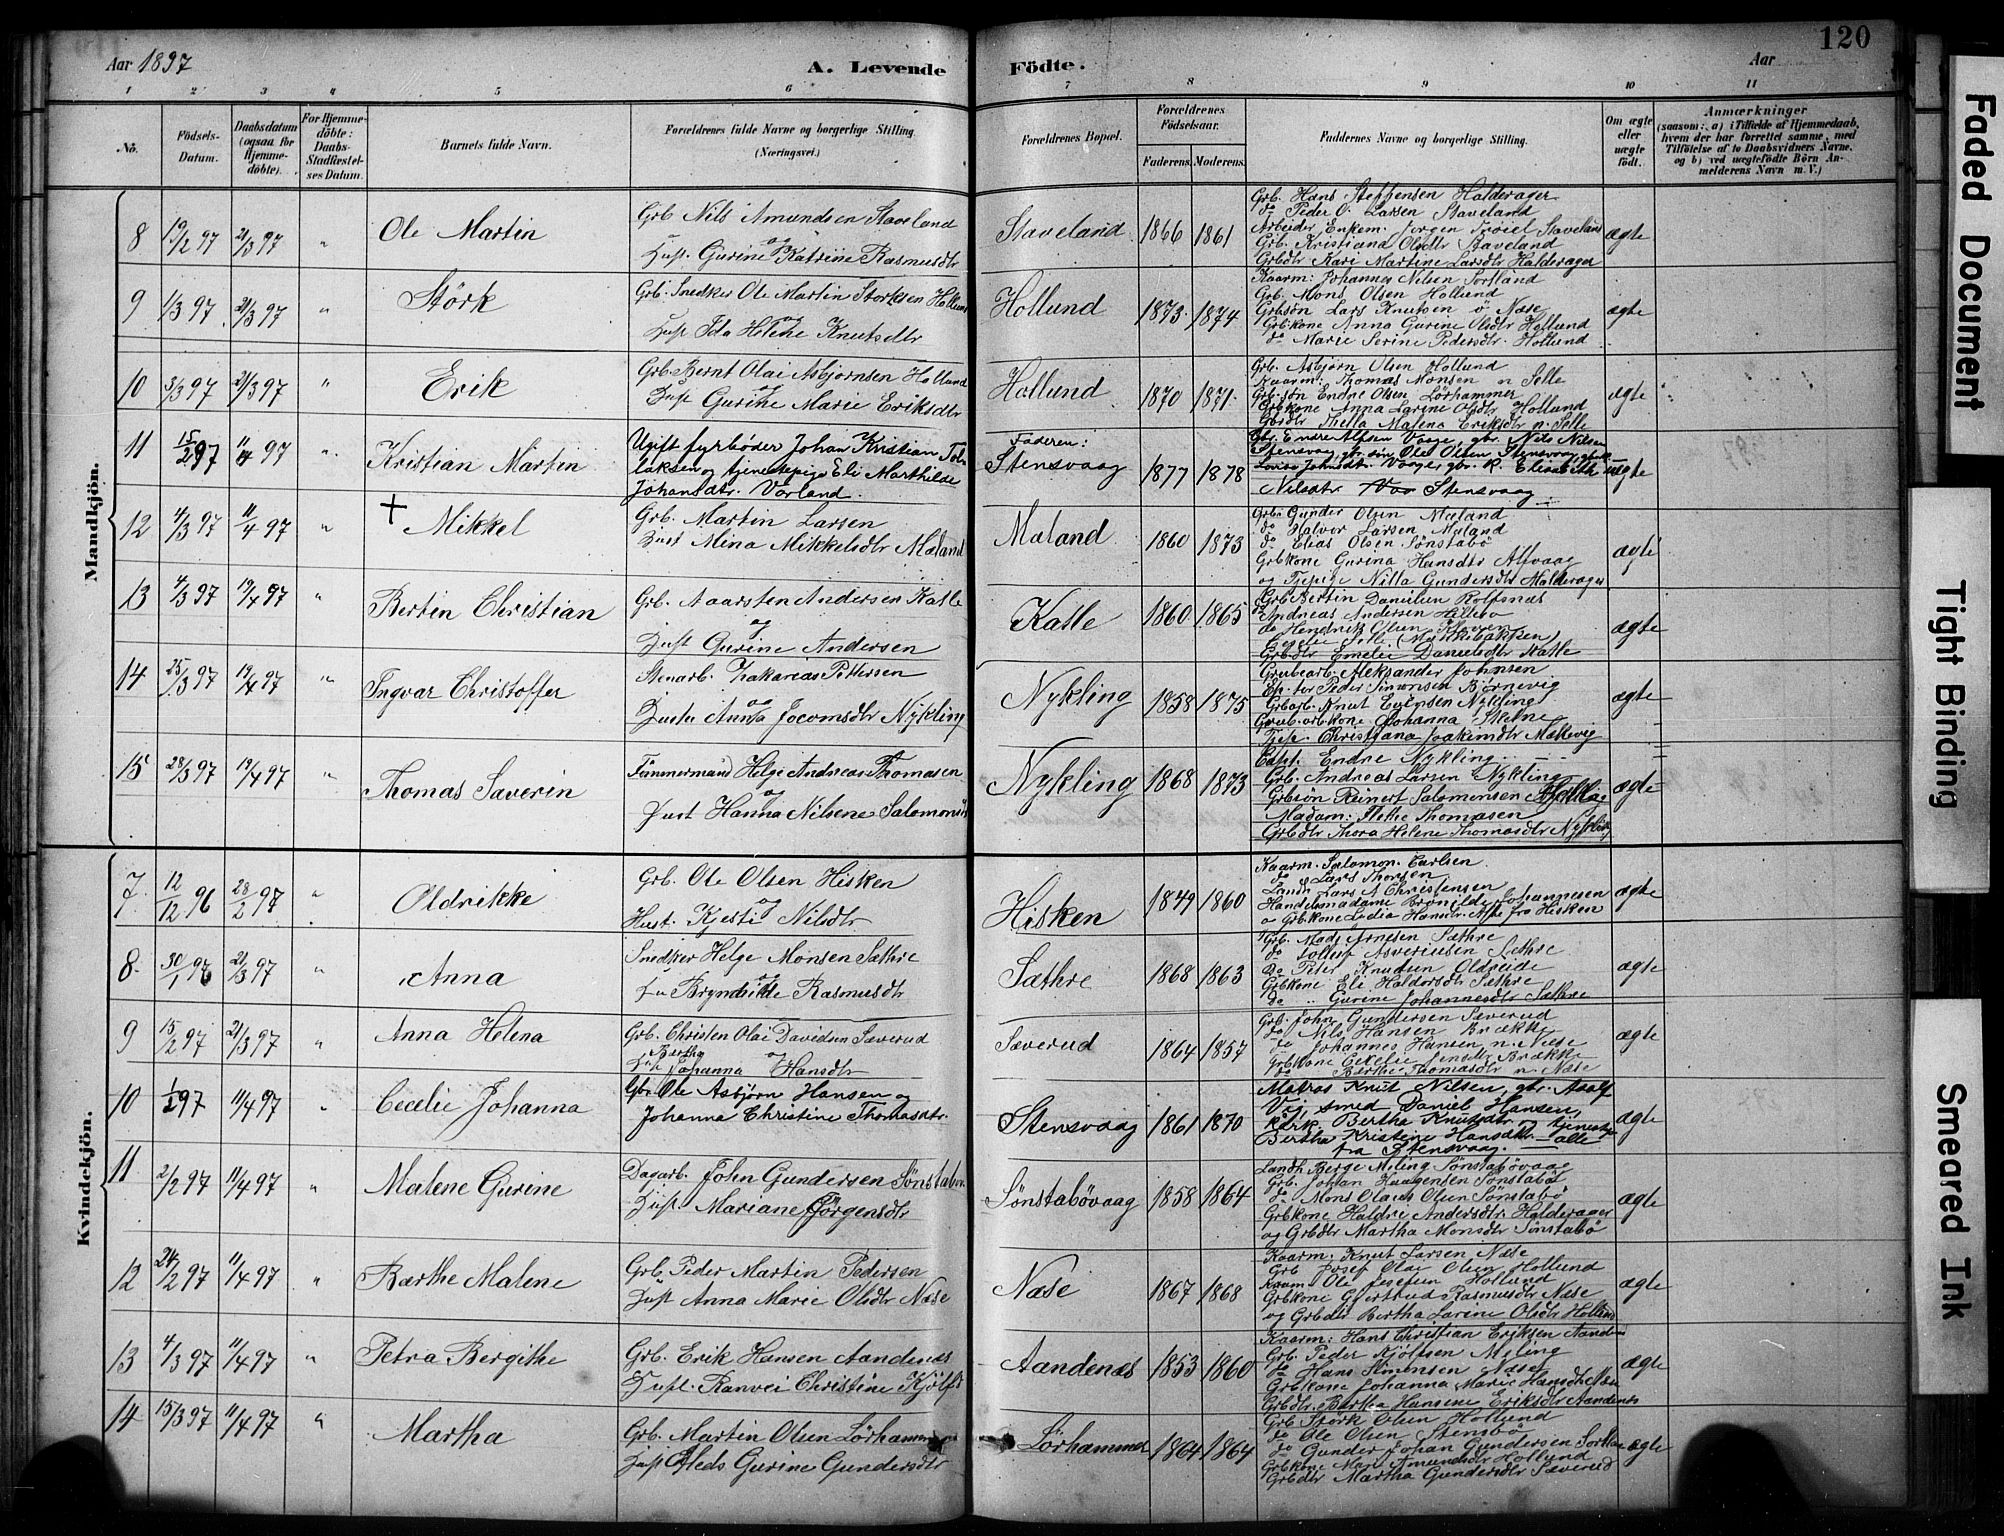 Aar 1897
A. Levende Födte.
Aar
120
1 2 3 4 5 6 7 8 9 10 11
No.
Födsels-Datum.
Daabsdatum (ogsaa for Hjemme-döbte).
For Hjemme-döbte: Daabs-Stadfæstel-ses Datum.
Barnets fulde Navn.
Forældrenes fulde Navne og borgerlige Stilling.
(Næringsvei.)
Forældrenes Bopæl.
Forældrenes Födselsaar.
Faderens. Moderens.
Faddernes Navne og borgerlige Stilling.
Om ægte eller uægte födt.
Anmærkninger
(saasom: a) i Tilfælde af Hjemmedaab, hvem der har forrettet samme, med Tilföielse af to Daabsvidners Navne, og b) ved uægtefödte Börn An-melderens Navn m. V.)
Mandkjön.
8 19/2 97 21/3 97 " Ole Martin
Grb. Nils Amundsen Staveland
og
Hust. Gurine Katrine Rasmusdtr
Staveland 1866 1861
Grb. Hans Steffensen Halderager
do Peder O. Larsen Staveland
Arbeider Enkem. Jørgen Troiel Staveland
Grb. Kristiana Olsdtr Staveland
Grbdtr Kari Martine Larsdtr Halderager
ægte
9 1/3 97 21/3 97 " Störk
Grb. Snedker Ole Martin Storksen Hollund
og
Hust Ida Helene Knutsdtr
Hollund 1873 1874
Kaarm: Johannes Nilsen Sortland
Grb. Mons Olsen Hollund
Grbsön Lars Knutsen ö Næse
Grbkone Anna Gurine Olsdtr Hollund
do Marie Serine Pedersdtr Hollund
ægte
10 3/3 97 21/3 97 " Erik
Grb. Bernt Olai Asbjornsen Hollund
og
Hust Gurine Marie Eriksdtr
Hollund 1870 1871
Grb. Asbjorn Olsen Hollund
Kaarm: Thomas Monsen n Selle
Grb.søn Endre Olsen Lörhammer
Grbkone Anna Larine Olsdtr Hollund
Gbrdtr Thella Malena Eriksdtr n. Selle
ægte
11 15/2 97 11/4 97 " Kristian Martin
Ugift fyrböder Johan Kristian Tol-
laksen og tjenestepige Eli Marthilde
Johansdtr. Vorland.
Faderen:
Stensvaag 1877 1878
Gbr. Endre Alfsen Vaage, gbr. Nils Nilsen
Stensvaag, gbr. sön Ole Olsen Stensvaag, gbr. k.
Lovise Johnsdtr. Vaage, gbr. k. Elisabeth
Nilsdtr. Stensvaag
uægte
12 4/3 97 11/4 97 " Mikkel
Grb. Martin Larsen
Hust Mina Mikkelsdtr Mæland
Mæland 1860 1873
Grb. Gunder Olsen Mæland
do Halvor Larsen Mæland
do Elias Olsen Sönstabö
Grbkone Gurina Hansdtr Alfvaag
og Tjepige Nilla Gundersdtr Halderager
ægte
13 4/3 97 19/4 97 " Bertin Christian
Grb. Aaarsten Andersen Katle
og
Hust Gurine Andersen
Katle 1860 1865
Grb Bertin Danielsen Rolfsnæs
do Andreas Andersen Hillebö
do Hendrik Olsen Klaven
Grb.dtr Emelie Danielsdtr Katle
ægte
14 25/3 97 19/4 97 " Ingvar Christoffer
Stenarb. Zakarias Pettersen
og
Hustr Anna Jocomsdtr Nykling
Nykling 1858 1875
Grubearb. Aleksander Johnsen
Peder Simonsen Börnevig
Grbarb. Knut Nykling
Grub.arbkone Johanna
Tjep. Christiana Joakimdtr Mækevig
ægte
15 28/3 97 19/4 97 " Thomas Saverin
Tömmermand Helge Andreas Thomasen
og
Hust Hanna Nilsene Salomonsdtr
Nykling 1868 1873
Capt. Endre Nykling
Grb. Andreas Larsen Nykling
Grbsön Reinert Salomonsen Nykling
Madam: Thomasen
Grb.dtr Thora Helene Thomasdtr Nykling
ægte
Kvindekjön.
7 12/12 96 28/2 97 " Oldrikke
Grb. Ole Olsen Hisken
og
Hust. Kjersti Nilsdtr
Hisken 1849 1860
Kaarm. Salomon Carlsen
do Lars Thorsen
Landh. Lars A Christensen
Handelsmadame Bronilde Johannesen
o Grbkone Lydia Hansdtr. Alle fra Hisken
ægte
8 30/1 96 21/3 97 " Anna
Snedker Helge Monsen Sæthre
og
Hu Brynhilde Rasmusdtr
Sæthre 1868 1863
Grb. Mads Arnesen Sæthre
do Tollef Sæthre
do Peter Knudsen Oldreide
Grbkone Eli Haldorsdtr Sæthre
do " Gurine Johannesdtr Sæthre
ægte
9 15/2 97 21/3 97 " Anna Helena
Grb. Christen Olai Davidsen Sæverud
og
Hust Bertha Johanna Hansdtr
Sæverud 1864 1857
Grb. John Gundersen Sæverud
do Nils Hansen Brække
do Johannes Hansen n. Næse
Grbkone Cecelie Jensdtr Brække
do Berthe Thomasdtr n. Næse
ægte
10 1/2 97 11/4 97 " Cecelie Johanna
Gbr. Ole Asbjörn Hansen og
Johanna Christine Thomasdtr.
Stensvaag 1861 1870
Matros Knut Nilsen, gbr. Adolf
Vaj, smed Daniel Hansen,
Bertha Knutsdtr. og tjeneste
Bertha Kristine Hansdtr. — alle
fra Stensvaag.
ægte
11 2/2 97 11/4 97 " Malene Gurine
Dagarb. John Gundersen Sönstabö
Hust. Mariane Jörgensdtr
Sönstabövaag 1858 1864
Landh Berge Meling Sönstabövaag
Grb. Johan Haagensen Sönstabö
do Mons Olaus Olsen Sönstabö
Grbkone Haldri Andersdtr Halderager
og Grbdtr Martha Monsdtr Sönstabö
ægte
12 24/2 97 11/4 97 " Barthe Malene
Grb. Peder Martin Pedersen
Hust Anna Marie Olsdtr Næse
Næse 1867 1868
Kaarm. Knut Larsen Næse
Grb Josef Olai Olsen Hollund
Kaarm Ole Josefsen Hollund
Grbkone Gjertrud Rasmusdtr Næse
og Grbdtr Bertha Larine Olsdtr Hollund
ægte
13 4/3 97 11/4 97 " Petra Bergithe
Grb. Erik Hansen Aandenæs
Hust. Ranvei Christine Kjölfs
Aandenæs 1853 1860
Kaarm: Hans Christian Eriksen Aandenæs
Grb. Peder Kjölfsen Meling
do Hans Simonsen Næse
Grbkone Johanna Marie Hansdtr
Grbdtr. Bertha Hansene Eriksdtr Aandenæs
ægte
14 15/3 97 11/4 97 " Martha
Grb. Martin Olsen Lörhammer
Hust Aleds Gurine Gundersdtr
Lörhammer 1864 1864
Grb. Störk Olsen Hollund
do Ole Olsen Stensbö
do Gunder Johan Gundersen Sortland
Grbkone Mari Amundsdtr Hollund
Grbdtr Martha Gundersdtr Sæverud
ægte
Faded Document
Tight Binding
Smeared Ink